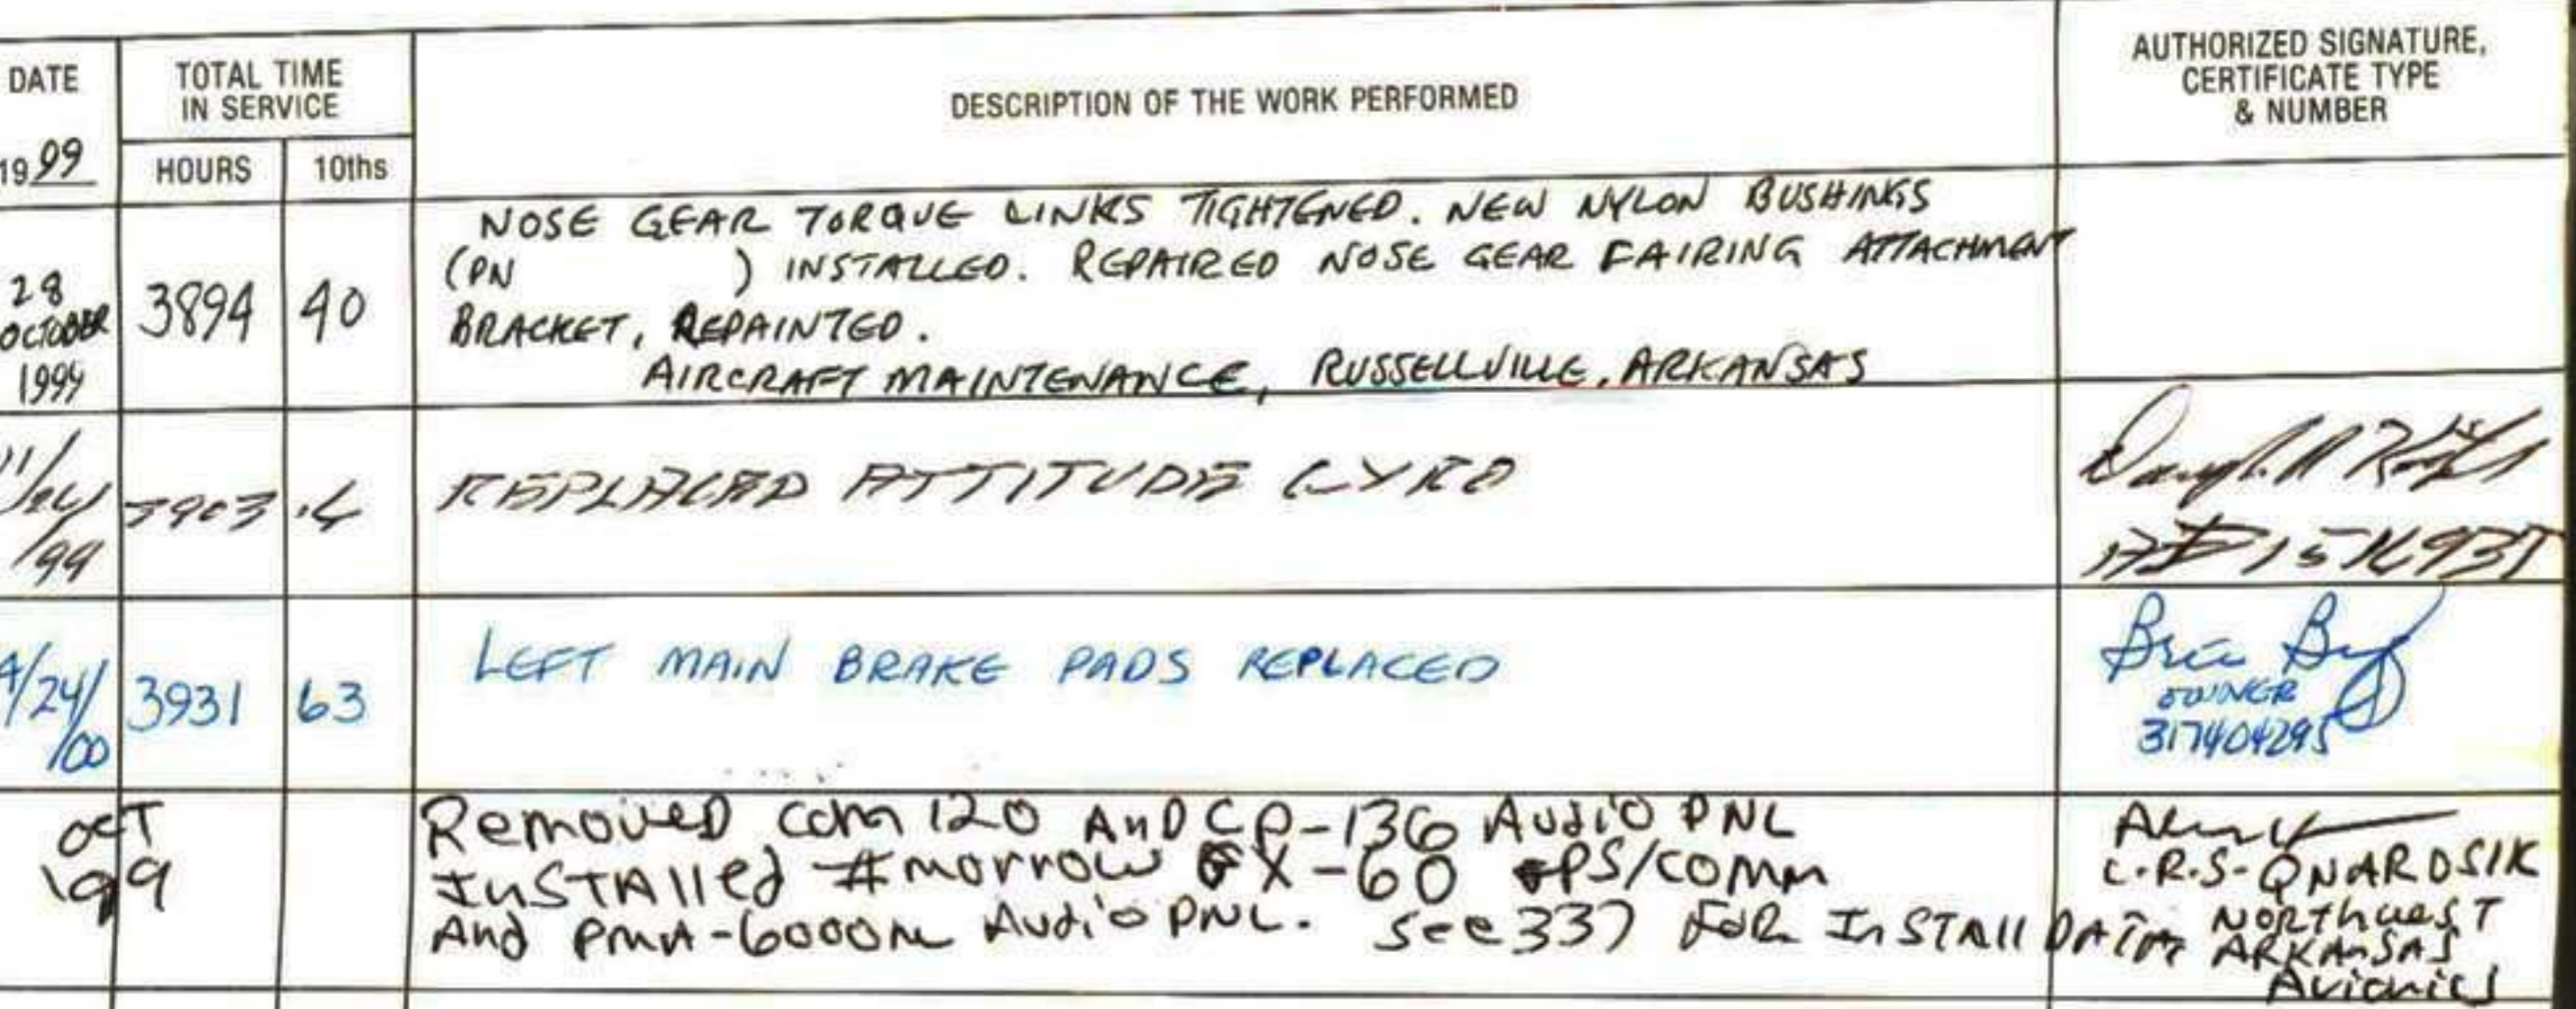 DATE
TOTAL TIME
IN SERVICE
DESCRIPTION OF THE WORK PERFORMED
AUTHORIZED SIGNATURE,
CERTIFICATE TYPE
& NUMBER
1999
HOURS
10ths
28
OCTOBER
1999
3894
40
NOSE GEAR TORQUE LINKS TIGHTENED. NEW NYLON BUSHINGS
(PN ) INSTALLED. REPAIRED NOSE GEAR FAIRING ATTACHMENT
BRACKET, REPAINTED.
AIRCRAFT MAINTENANCE, RUSSELLVILLE, ARKANSAS
/99
3903
REPLACED ATTITUDE GYRO
4/24/
/00
3931
63
LEFT MAIN BRAKE PADS REPLACED
OWNER
317404295
OCT
199
Removed com 120 AND CP-136 AUDIO PNL
INSTAlled #morrow GX-60 GPS/COMM
And PMA-6000M Audio PNL. See 337 FOR InSTAll DATA
C.R.S.-QNARDSIK
NORThwesT
ARKAnSAS
Avionics